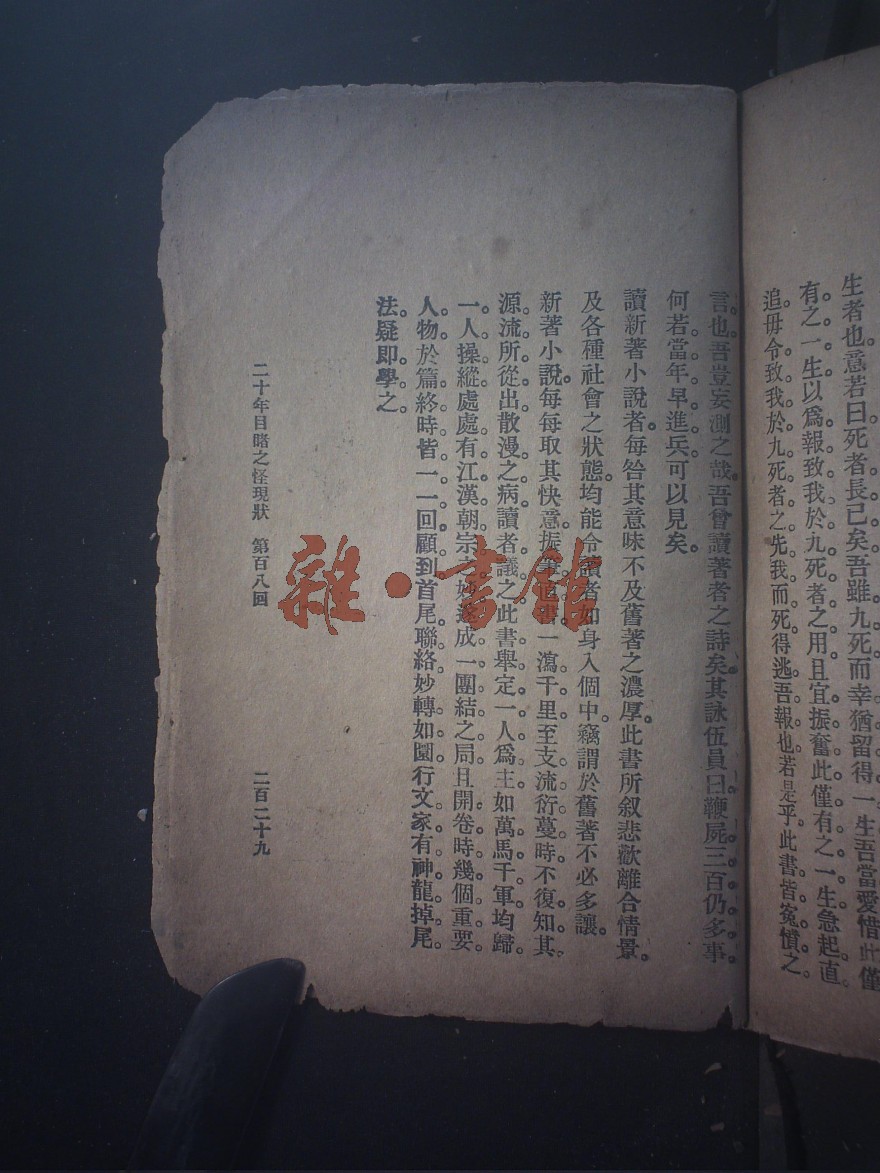 生者也意若曰死者長已矣吾雖九死而幸猶留得一生吾當愛惜此僅
有之一生以爲報致我於九死者之用且宜振奮此僅有之一生急起直
追毋令致我於九死者之先我而死得逃吾報也若是乎此書皆冤憤之
言也吾豈妄測之哉吾曾讀著者之詩矣其詠伍員曰鞭屍三百仍多事
何若當年早進兵可以見矣
讀新著小說者每咎其意味不及舊著之濃厚此書所叙悲歡離合情景
及各種社會之狀態均能令讀者如身入個中竊謂於舊著不必多讓
新著小說每每取其快意振筆直書一瀉千里至支流衍蔓時不復知其
源流所從出散漫之病讀者議之此書舉定一人爲主如萬馬千軍均歸
一人操縱處處有江漢朝宗之妙遂成一團結之局且開卷時幾個重要
人物於篇終時皆一一回顧到首尾聯絡妙轉如圜行文家有神龍掉尾
法疑即學之
二十年目睹之怪現狀 第百八回
二百二十九
雜·書館